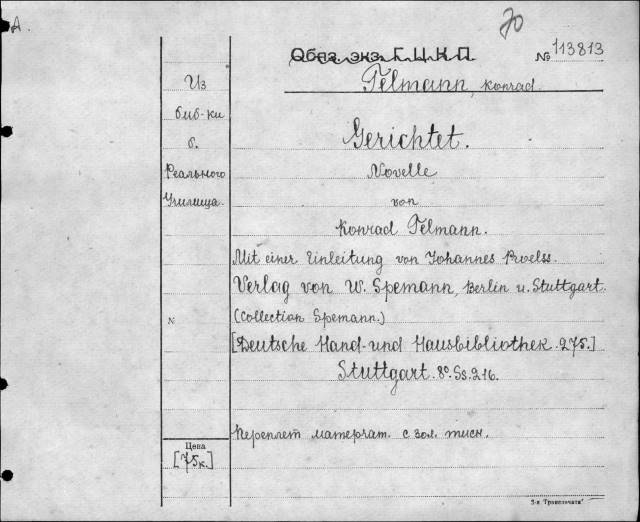 А.
70
Обяз. экз. Г.Ц.К.П.
№ 113813
Telmann, Konrad
Из
биб-ки
б.
Реального
Училища.
Gerichtet.
Novelle
von
Konrad Telmann.
Mit einer Einleitung von Johannes Proelss.
Verlag von W. Spemann, Berlin u. Stuttgart.
(Collection Spemann.)
[Deutsche Hand- und Hausbibliothek. 275.]
Stuttgart. 8º. Ss. 216.
N
Переплет матерчат. с зол. тисн.
Цена
[75к.]